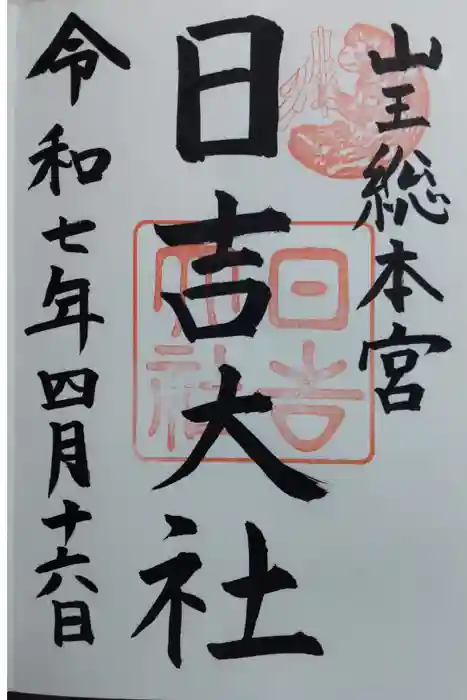 山王総本宮
日吉大社
日吉
大社
令和七年四月十六日